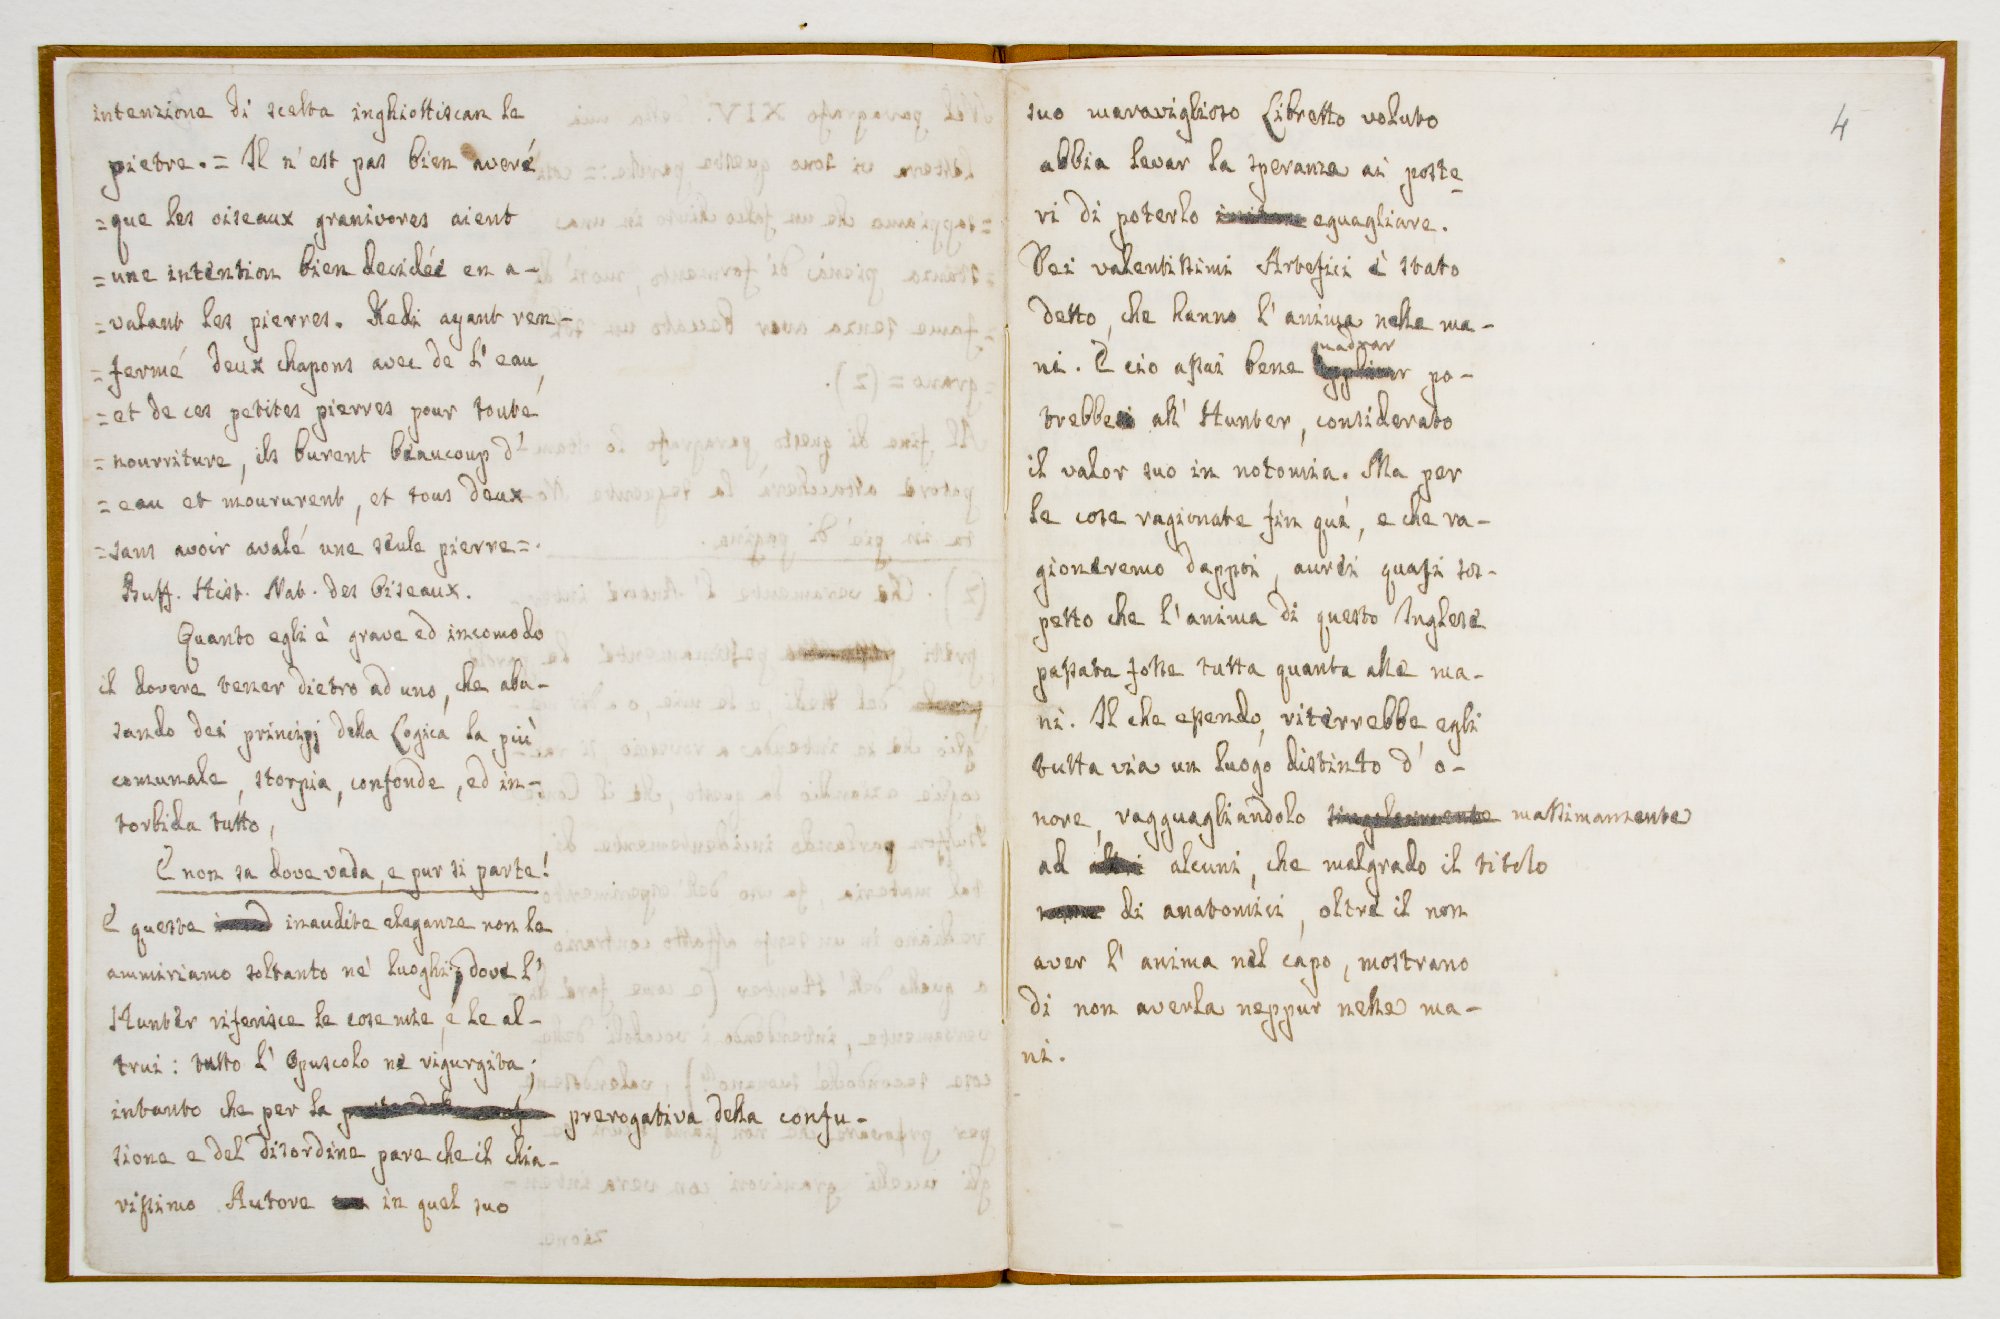 intenzione di scelta inghiottiscan le
pietre. = Il n'est pas bien averé
= que les oiseaux granivores aient
= une intention bien decidée en a-
= valant les pierres. Redi ayant ren-
= fermé deux chapons avec de l'eau,
= et de ces petites pierres pour toute
= nourriture, ils burent beaucoup d'
= eau et moururent, et tous deux
= sans avoir avalé une seule pierre =.
Buff. Hist. Nat. des Oiseaux.
Quanto egli è grave ed incomodo
il dovere tener dietro ad uno, che abu-
sando dei principj della Logica la più
comunale, storpia, confonde, ed in-
torbida tutto,
E non sa dove vada, e pur si parte!
E queste inaudite eleganze non le
ammiriamo soltanto ne' luoghi, dove l'
Hunter riferisce le cose mie, e le al-
trui: tutto l'Opuscolo ne rigurgita;
intanto che per la prerogativa della confu-
sione e del disordine pare che il chia-
rissimo Autore in quel suo
4
suo maraviglioso Libretto voluto
abbia levar la speranza ai poste-
ri di poterlo eguagliare.
Dei valentissimi Artefici è stato
detto, che hanno l'anima nelle ma-
ni. E cio assai bene quadrar po-
trebbe all'Hunter, considerato
il valor suo in notomia. Ma per
le cose ragionate fin quà, e che ra-
gioneremo dappoi, avrei quasi sos-
petto che l'anima di questo Inglese
passata fosse tutta quanta alle ma-
ni. Il che essendo, riterrebbe egli
tutta via un luogo distinto d'o-
nore, ragguagliandolo massimamente
ad alcuni, che malgrado il titolo
di anatomici, oltre il non
aver l'anima nel capo, mostrano
di non averla neppur nelle ma-
ni.